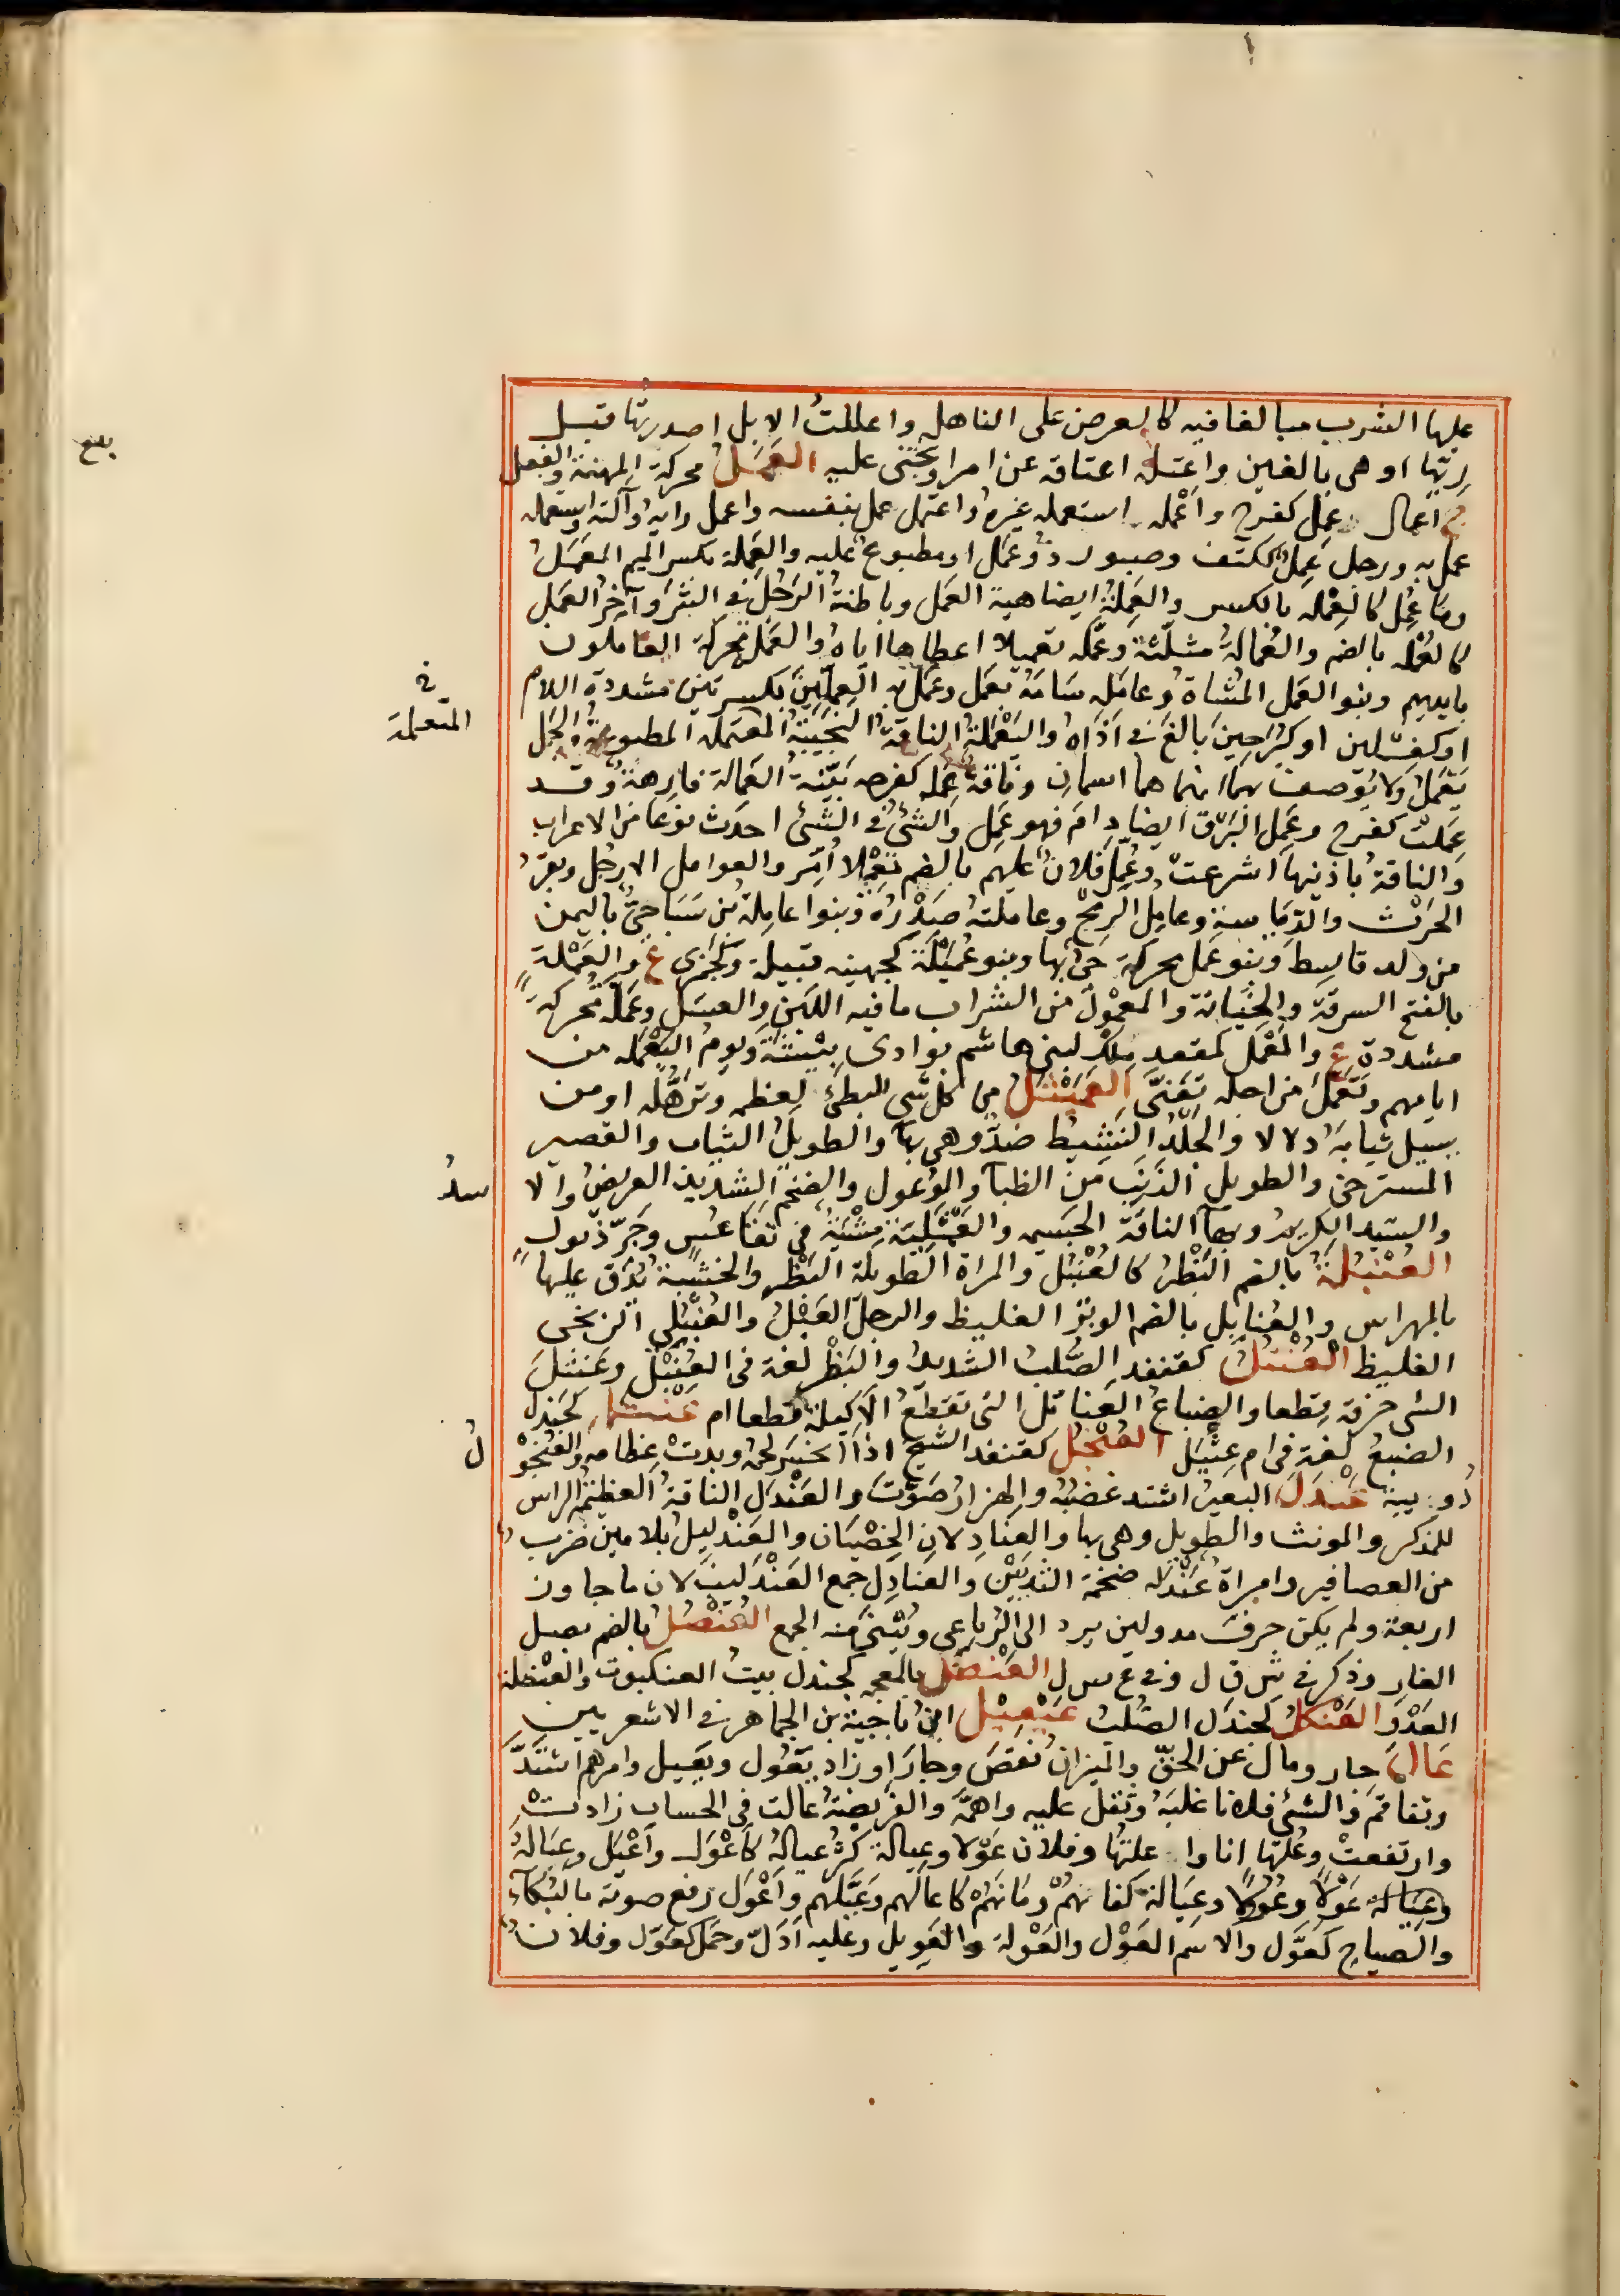 عليها الشرب مبالغا فيه كالعرض على الناهل واعللتُ الابل اصدرتها قبل
رِيّها او هى بالغين واعتلّه اعتاقه عن امر او تجنّى عليه العَمَلُ محركة المهنة والفعل
ج اعمال عمِل كفرح واعْمله استعمله غيره واعتمل عمل بنفسه واعمل رايه وآلته واستعمله
عمل به ورجل عَمِلٌ ككتف وصبور ذو عَمَل او مطبوع عليه والعَمِلة بكسر الميم العَمَلُ
وما عُمِل كالعِمْلة بالكسر والعِمْلة ايضا هيئة العمل وباطنة الرَجُل فى الشرّ واَجْر العَمَل
كالعُمْلة بالضم والعمالة مثلّثة وعمّله تعميلا اعطاها اياه والعَمَلة محركة العاملون
بايديهم وبنو العمل المُشاة وعامله سامه بعَمَل وعمل به العِمِلّين بكسرتين مشددة اللام
او كغِسْلين او كبُرَحين بالغ فى اذاه واليَعْمَلة الناقة النجيبة المعتملة المطبوعة والجمل
يَعْمَل ولا يوصف بهما انما هما اسمان وناقة عَمِلة كفرحة بيّنة العَمالة فارهة وقد
عمِلتْ كفرح وعَمِل البرق ايضا دام فهو عَمِل والشئ فى الشئ احدث نوعا من الاعراب
والناقة باذنيها اسرعت وعُمِّل فلان عليهم بالضم تعميلا اُمِّر والعوامل الارجل وبقر
الحَرْث والدياسة وعامل الرمح وعاملته صدره وبنو عاملة بن سَبَا حىّ باليمن
من ولد قاسط وبنو عَمَل محركة حىّ بها وبنو عُمَيْلة كجهينة قبيلة وكجَمَزى ع والعَمْلة
بالفتح السرقة والخيانة والمعمول من الشراب ما فيه اللبن والعسل وعَمَلّة محركة
مشددة ع والمَعْمَل كمقعد مِلك لبنى هاشم بوادى بيشة ويوم اليعملة من
ايامهم وتَعَمّل من اجله تَعَنّى العَمَيْثَلُ من كل شئ البطئ لعظمه وترهّله او من
يسبل ثيابه دلالا والجَلْد النشيط ضدّ وهى بهاء والطويل الثياب والقصير
المسترخى والطويل الذَنَب من الظباء والوعول والضخم الشديد العريض والاسد
والسيد الكريم وبهاء الناقة الجسيمة والعَمَيْثَلِيّة مِشْية فى تقاعس وجَرّ ذيول
العُنْبُلَة بالضم البَظْر كالعُنْبُل والمراة الطويلة البَظْر والخشبة يُدق عليها
بالمهراس والعُنابِل بالضم الوتر الغليظ والرجل العَبْل والعُنْبُلى الزنجى
الغليظ العُنْتُلُ كقنفذ الصُلب الشديد والبَظْر لغة فى العُنْبُل وعَنْتَلَ
الشى خرقه قطعا والضباع العناتل التى تقطّع الاكيلة قطعا ام عَنْثَل كجندل
الضبع لغة فى ام عِثْيَل العُنْجُل كقنفذ الشيخ اذا انحسر لحمه وبدت عظامه والعُنْجُولُ
دُوَيبة عَنْدَلَ البعير اشتد غضبه والهزار صَوّت والعَنْدَل الناقة العظيمة الراس
للمذكر والمونث والطويل وهى بها والعنادلان الخصيان والعَنْدَليل بلامين ضرب
من العصافير وامراة عَنْدَلة ضخمة الثديين والعنادِل جمع العَنْدَليب لان ما جاوز
اربعة ولم يكن حرف مد ولين يرد الى الرباعى ويُبنى منه الجمع العُنْصُل بالضم بصل
الفار وذكر فى ش ق ل وفى ع س ل العَنْضَل بالمعجمة كجندل بيت العنكبوت والعنظلة
العَدْو العَنْكَل كجندل الصُلب عَيْمِيْل ابن ناجية بن الجماهر فى الاشعريين
عَالَ جار ومال عن الحق والميزان نقص وجار او زاد يَعُول ويَعِيل وامرهم اشتدّ
وتفاقم والشئ فلانا غلبه وثقل عليه واهمّه والفريضة عالت فى الحساب زادت
وارتفعت وعُلْتها انا واعلتها وفلان عَوْلا وعيالة كثُر عياله كاَعْوَل واَعْيَل وعياله
وعِيَالة عَوْلا وعُوولا وعِيَالة كفاهم ومانهم كاعالهم وعَيّلهم واَعْوَل رفع صوته بالبكاء
والصياح كعَوّل والاسم العَوْل والعَوْلة والعَوِيل وعليه اَدَلّ وحَمَل كعَوّل وفلان